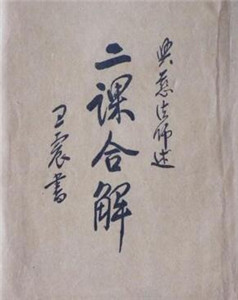 興慈法師述
二課合解
王震書